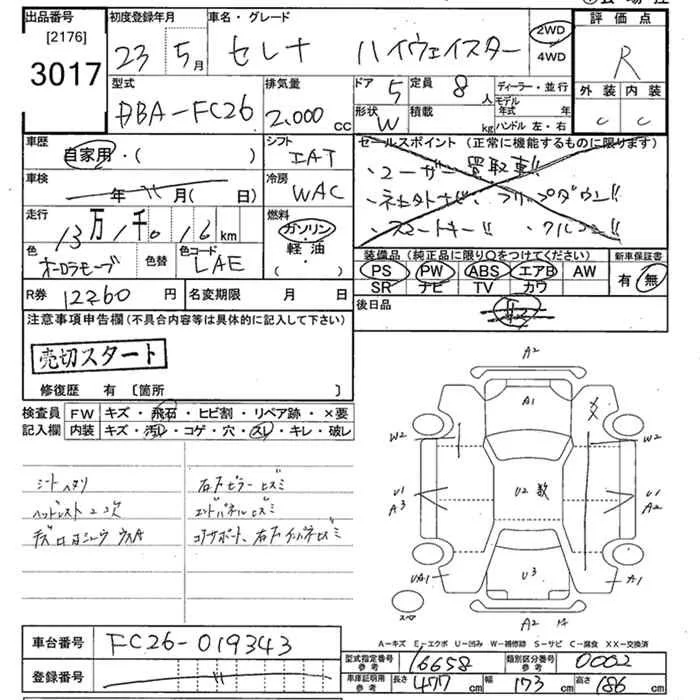 出品番号 初度登録年月 車名・グレード 評価点
[2176]
3017
23年 5月 セレナ ハイウェイスター 2WD 4WD R
型式 排気量 ドア 定員 ディーラー・並行
DBA-FC26 2,000cc 5 8人
形状 W 積載 kg モデル年式 年 ハンドル 左・右
外装 内装
C C
車歴 シフト セールスポイント(正常に機能するものに限ります)
自家用・( ) IAT ・ユーザー買取車!!
車検 年 11月(日) 冷房 WAC
走行 13万1千016km 燃料 ガソリン・軽油・
・スマートキー!!
色 色替 色コード LAE
装備品(純正品に限り○をつけてください) 新車保証書
PS PW ABS エアB AW 有・無
SR ナビ TV カワ
R券 12260円 名変期限 月 日 後日品
注意事項申告欄(不具合内容等は具体的に記入して下さい)
売切スタート
修復歴 有〔箇所 〕
検査員 FW キズ・飛石・ヒビ割・リペア跡・×要
記入欄 内装 キズ・汚レ・コゲ・穴・スレ・キレ・破レ
シートヘタリ
右Fピラーヒズミ
エンドパネルヒズミ
A2
A1
XX
W2 W2
U1 A3
U2 数
U1 A2
UA1
U3
A1
スペア
A2
A-キズ E-エクボ U-凹み W-補修跡 S-サビ C-腐食 XX-交換済
車台番号 FC26-019343
型式指定番号 参考 16658 類別区分番号 参考 0002
登録番号 車庫証明用 参考 長さ 477cm 幅 173cm 高さ 186cm